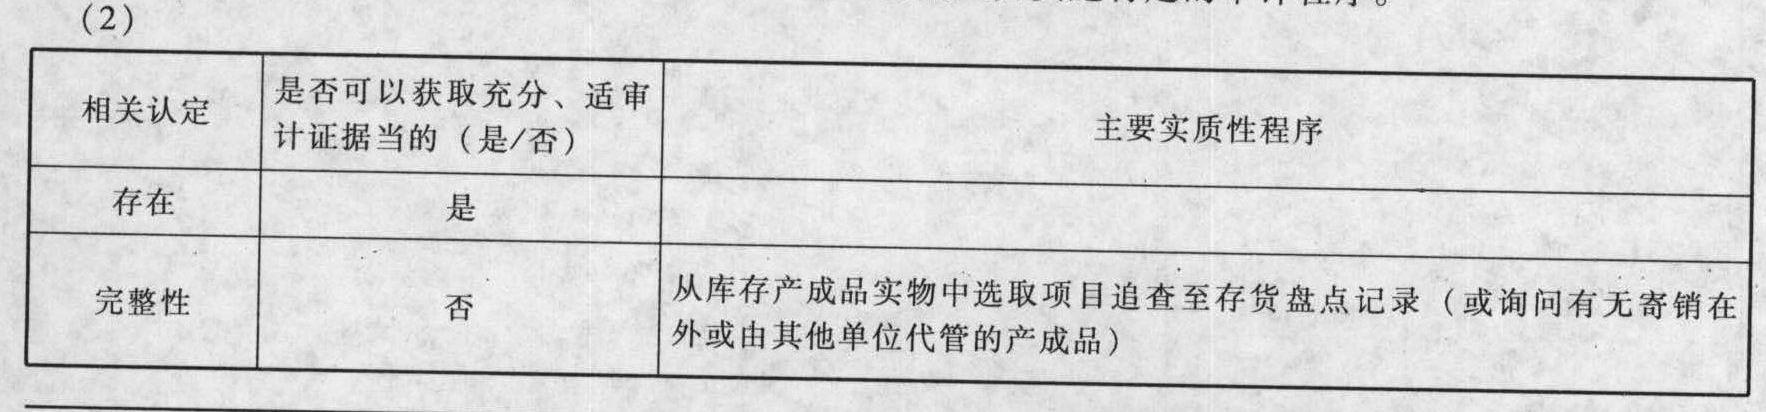 (2)
相关认定
是否可以获取充分、适审
计证据当的（是/否）
主要实质性程序
存在
是
完整性
否
从库存产成品实物中选取项目追查至存货盘点记录（或询问有无寄销在
外或由其他单位代管的产成品）